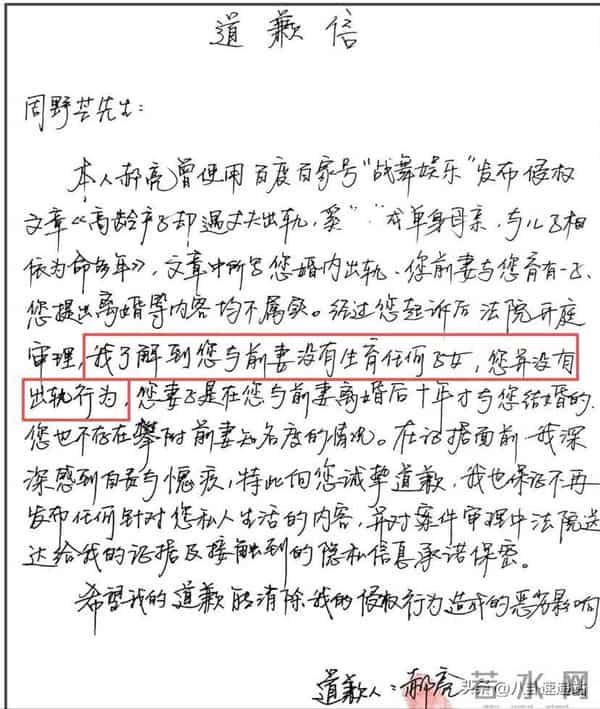 道歉信
周野芒先生:
本人郝亮曾使用百度百家号"战舞娱乐"发布侵权
文章《高龄产子却遇丈夫出轨,奚"" 成单身母亲,与儿子相
依为命多年》,文章中所写您婚内出轨、您前妻与您育有一子、
您提出离婚等内容均不属实。经过您起诉后法院开庭
审理,我了解到您与前妻没有生育任何子女,您并没有
出轨行为,您妻子是在您与前妻离婚后十年才与您结婚的,
您也不存在攀附前妻知名度的情况。在证据面前我深
深感到自责与愧疚,特此向您诚挚道歉,我也保证不再
发布任何针对您私人生活的内容,并对案件审理中法院送
达给我的证据及接触到的隐私信息承诺保密。
希望我的道歉能消除我的侵权行为造成的恶劣影响
道歉人:郝亮
头条@八卦速递
若水网